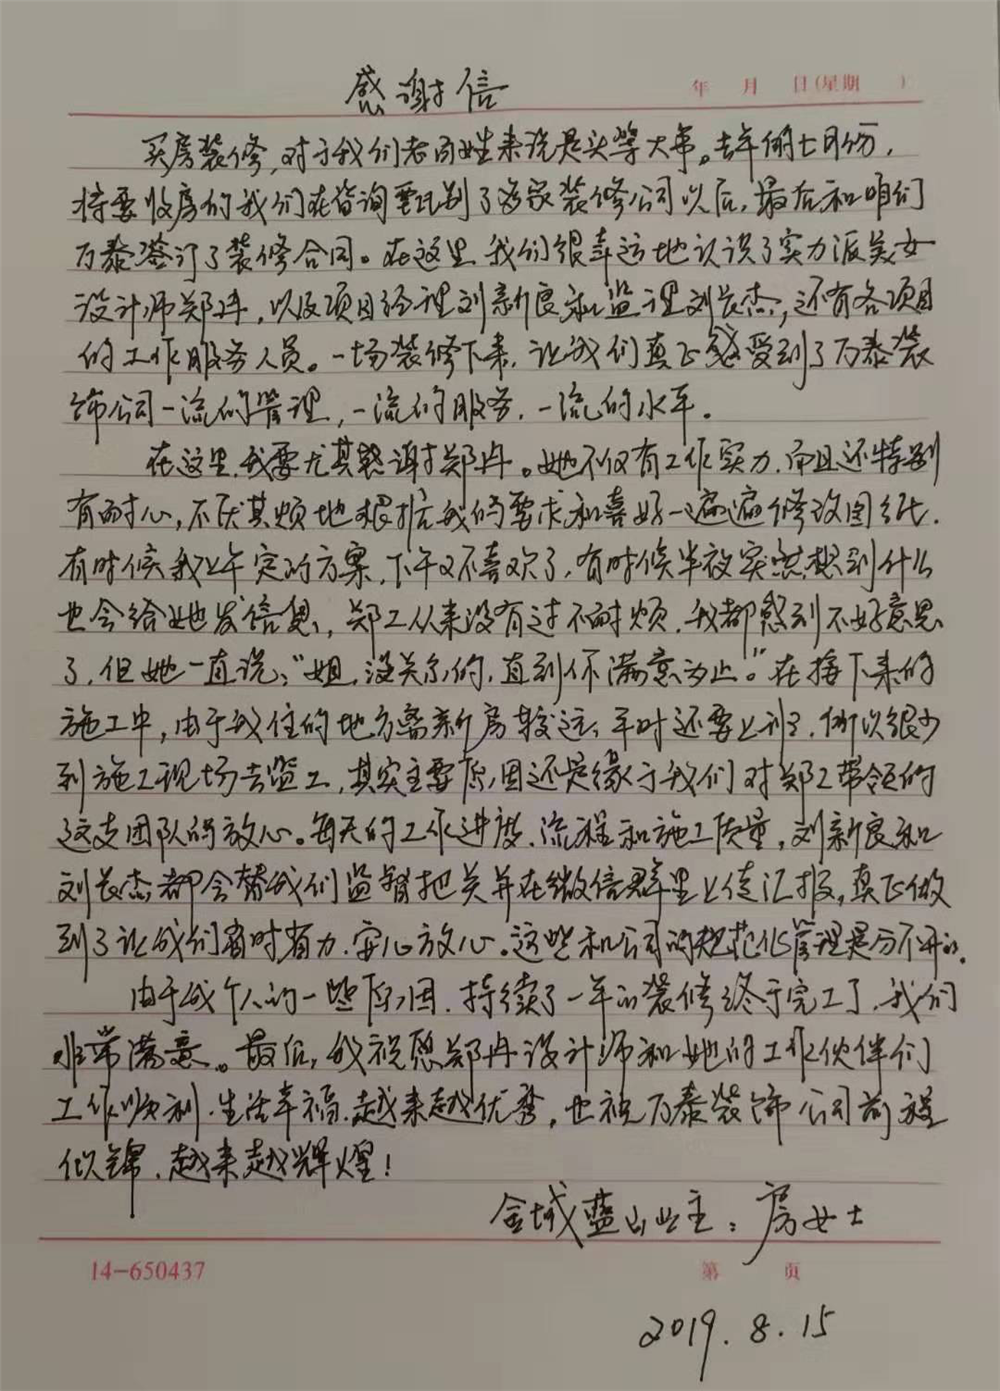 年 月 日(星期 )
感谢信
买房装修,对于我们老百姓来说是头等大事。去年的七月份,
将要收房的我们在咨询甄别了多家装修公司以后,最后和咱们
万泰签订了装修合同。在这里我们很幸运地认识了实力派美女
设计师郑丹,以及项目经理刘新良和监理刘长杰,还有各项目
的工作服务人员。一场装修下来,让我们真正感受到了万泰装
饰公司一流的管理,一流的服务,一流的水平。
在这里,我要尤其感谢郑丹。她不仅有工作实力,而且还特别
有耐心,不厌其烦地根据我的要求和喜好一遍遍修改图纸。
有时候我上午定的方案,下午又不喜欢了,有时候半夜突然想到什么
也会给她发信息,郑工从来没有过不耐烦,我都感到不好意思
了,但她一直说:“姐,没关系的,直到你满意为止。”在接下来的
施工中,由于我住的地方离新房较远,平时还要上班,所以很少
到施工现场去监工,其实主要原因还是缘于我们对郑工带领的
这支团队的放心。每天的工作进度、流程和施工质量,刘新良和
刘长杰都会替我们监督把关并在微信群里上传汇报,真正做
到了让我们省时省力、安心放心。这些和公司的规范化管理是分不开的。
由于我个人的一些原因,持续了一年的装修终于完工了,我们
非常满意。最后,我祝愿郑丹设计师和她的工作伙伴们
工作顺利、生活幸福、越来越优秀,也祝万泰装饰公司前程
似锦、越来越辉煌!
金域蓝山业主:房女士
14-650437
第 页
2019.8.15